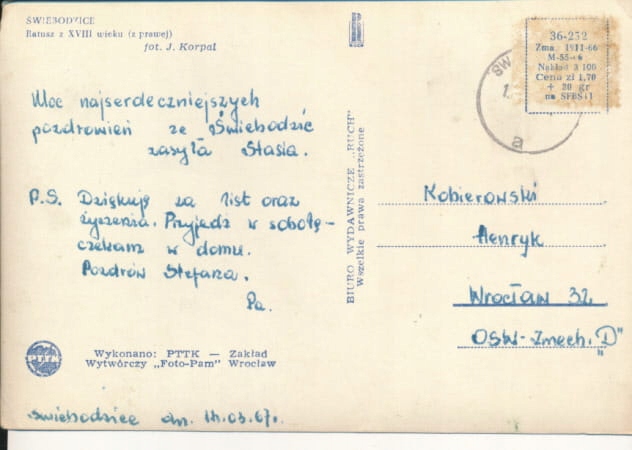 ŚWIEBODZICE
Ratusz z XVIII wieku (z prawej)
fot. J. Korpal
RUCH
36-232
Zma. 1911-66
M-55-6
Nakład 3 100
Cena zł 1,70
+ 20 gr
na SFBS i I
ŚW
1
a
Moc najserdeczniejszych
pozdrowień ze Świebodzic
zasyła Stasia.
P.S. Dziękuję za list oraz
życzenia. Przyjedź w sobotę-
czekam w domu.
Pozdrów Stefana.
Pa.
BIURO WYDAWNICZE „RUCH"
Wszelkie prawa zastrzeżone
Kobierowski
Henryk
Wrocław 32
OSW-Zmech. „D"
Wykonano: PTTK — Zakład
Wytwórczy „Foto-Pam" Wrocław
Świebodzice dn. 14.03.67r.